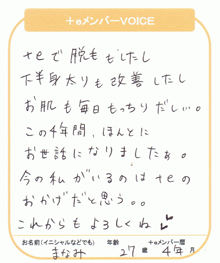 +eメンバーVOICE
+eで脱ももしたし
下半身太りも改善したし
お肌も毎日もっちりだしい。
この4年間、ほんとに
お世話になりましたぁ。
今の私がいるのは+eの
おかげだと思う。。
これからもよろしくね
お名前(イニシャルなどでも) 年齢 +eメンバー暦
まなみ 27歳 4年 月